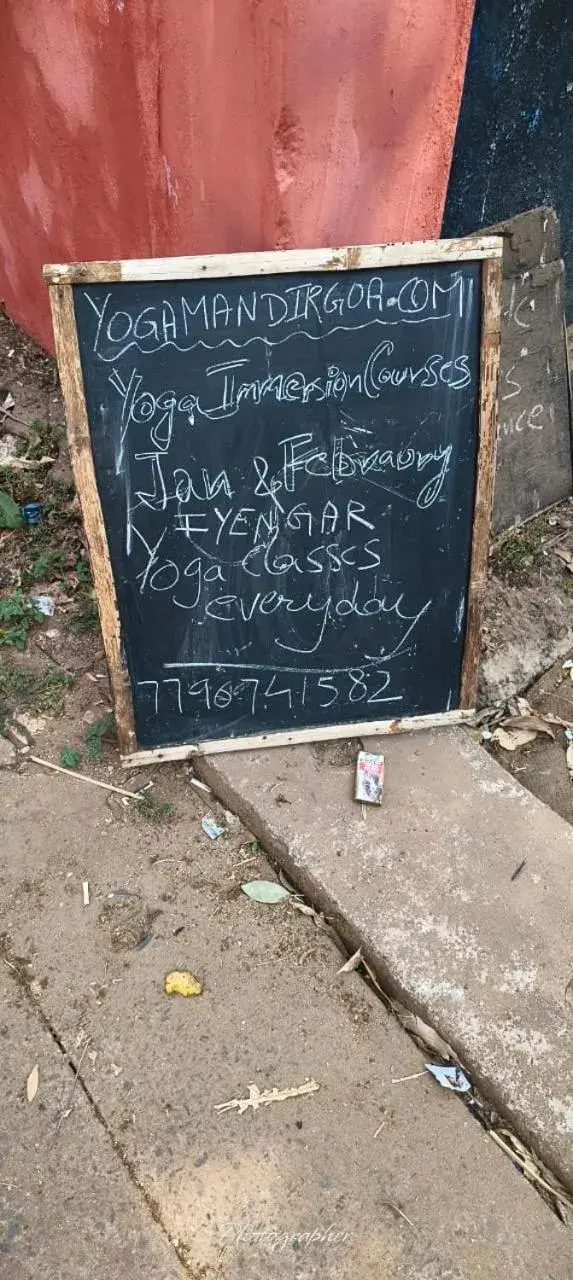 YOGAMANDIRGOA.COM
Yoga Immersion Courses
Jan & February
IYENGAR
Yoga classes
everyday
7796741582
Photographer